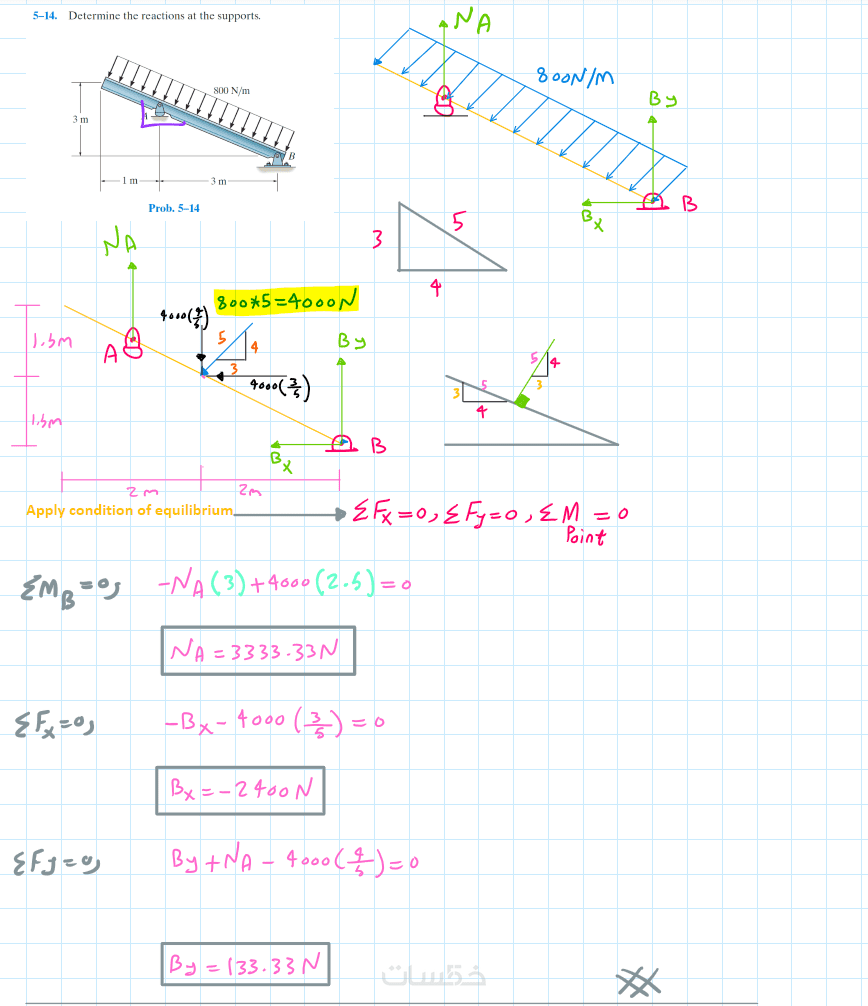 5–14. Determine the reactions at the supports.
800 N/m
A
B
3 m
1 m
3 m
Prob. 5–14
NA
800N/M
By
Bx
B
3
5
4
NA
800*5=4000N
4000(4/5)
5
4
3
4000(3/5)
A
By
Bx
B
1.5m
1.5m
2m
2m
5
4
3
3
5
4
Apply condition of equilibrium
ΣFx=0, ΣFy=0, ΣM Point =0
ΣMB=0; -NA(3)+4000(2.5)=0
NA=3333.33N
ΣFx=0, -Bx-4000(3/5)=0
Bx=-2400N
ΣFy=0, By+NA-4000(4/5)=0
By=-133.33N
خمسات